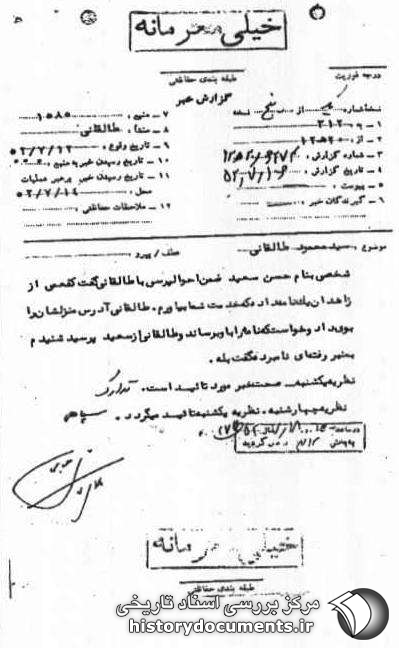 خیلی محرمانه
طبقه بندی حفاظتی
درجه فوریت
گزارش خبر
نسخه شماره از پنج نسخه
۱ - به ۳۱۲
۲ - از
۳ - شماره گزارش
۴ - تاریخ گزارش
۵ - پیوست
۶ - گیرندگان خبر
۷ - منبع ۱۰۸۵
۸ - منشأ طالقانی
۹ - تاریخ وقوع ۵۲/۷/۱۲
۱۰ - تاریخ رسیدن خبر به منبع
۱۱ - تاریخ رسیدن خبر برهبر عملیات
محل ۵۲/۷/۱۴
۱۲ - ملاحظات حفاظتی
موضوع سید محمود طالقانی عطف / پیرو
شخصی بنام حسن سعید ضمن احوالپرسی با طالقانی گفت کفعمی از
زاهدان یک نامه داد که خدمت شما بیاورم . طالقانی آدرس منزلشان را
بوی داد و خواست که نامه را با و برساند و طالقانی از سعید پرسید شنیدم
بمنبر رفته‌ای نامبرده گفت بله .
نظریه یکشنبه . صحت خبر مورد تائید است .
نظریه چهارشنبه . نظریه یکشنبه تائید میگردد .
خیلی محرمانه
طبقه بندی حفاظتی
مرکز بررسی اسناد تاریخی
historydocuments.ir